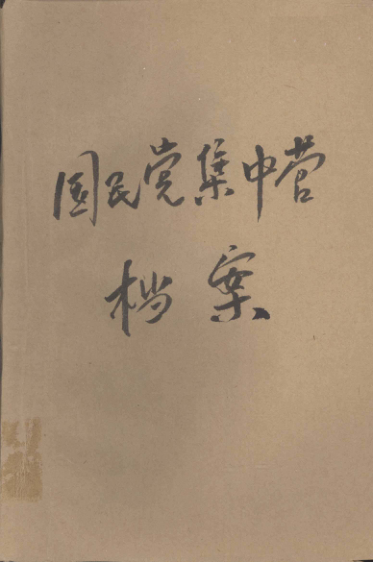 国民党集中营
档案